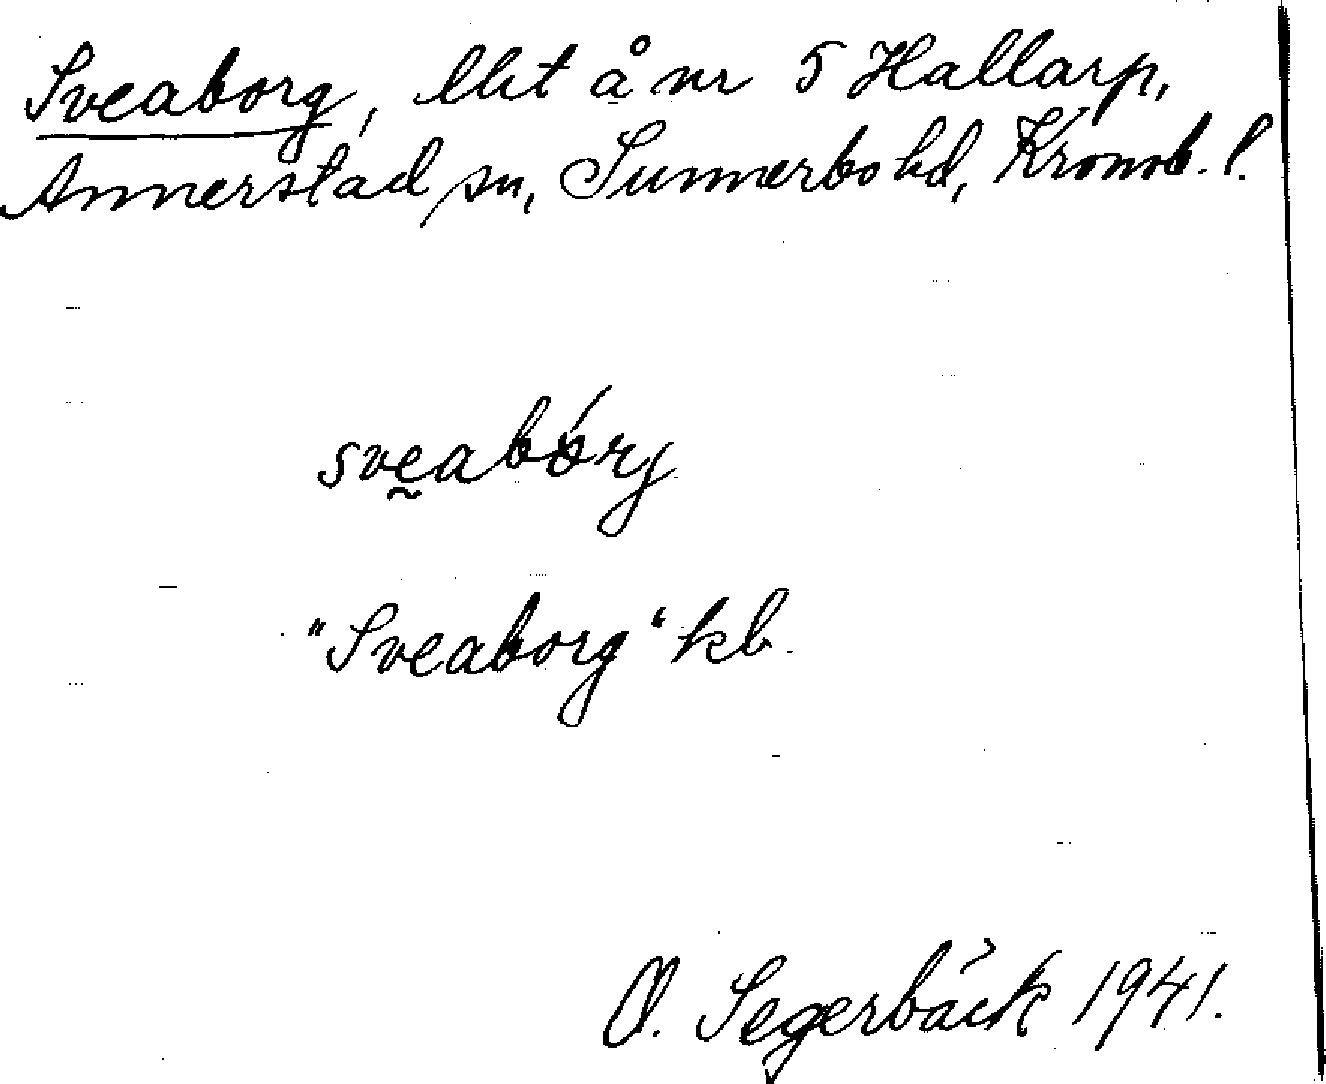 Sveaborg, lht å nr 5 Hallarp,
Annerstad sn, Sunnerbo hd, Kronob. l.
sveabórj
"Sveaborg" kb.
O. Segerbäck 1941.